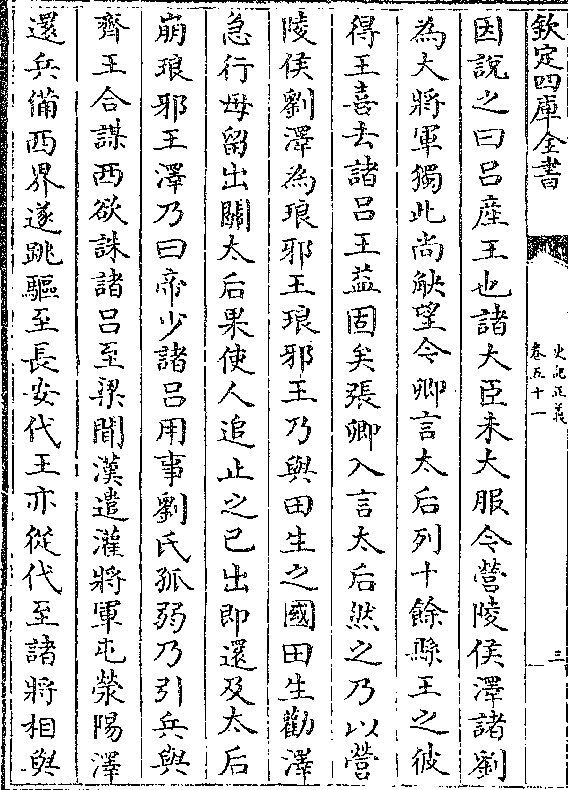 欽定四庫全書
史記正義
卷五十一
三
因說之曰呂産王也諸大臣未大服今營陵侯澤諸劉
為大將軍獨此尚觖望今卿言太后列十餘縣王之彼
得王喜去諸呂王益固矣張卿入言太后然之乃以營
陵侯劉澤為琅邪王琅邪王乃與田生之國田生勸澤
急行毋留出關太后果使人追止之已出即還及太后
崩琅邪王澤乃曰帝少諸呂用事劉氏孤弱乃引兵與
齊王合謀西欲誅諸呂至梁聞漢遣灌將軍屯滎陽澤
還兵備西界遂跳驅至長安代王亦從代至諸將相與